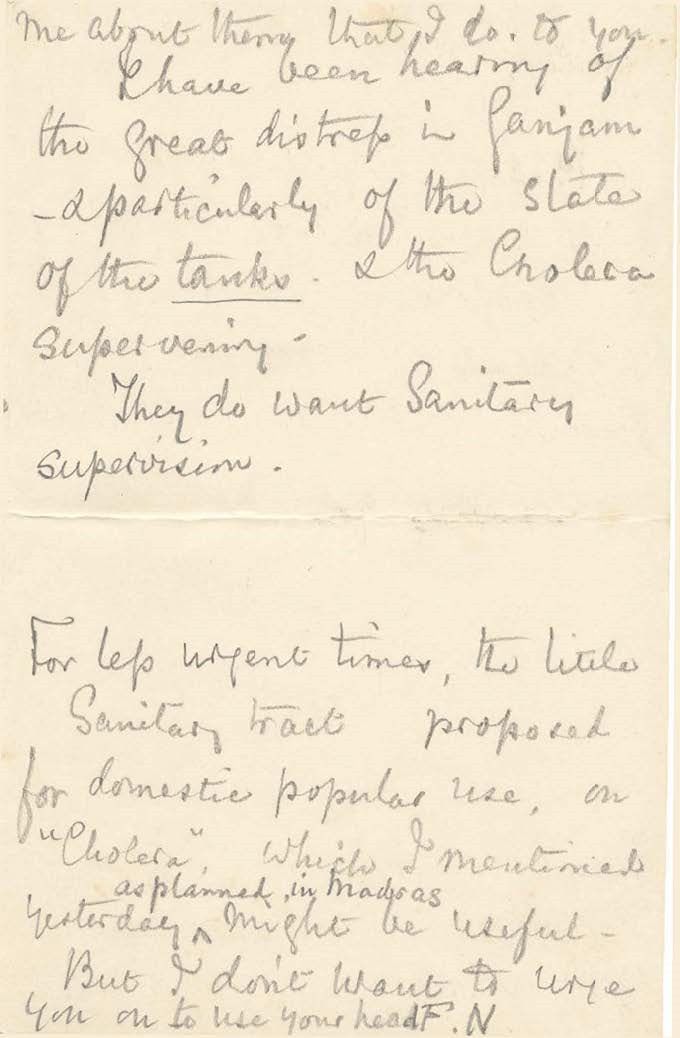 me about them, that I do. to you.
I have been hearing of
the great distress in Ganjam
- & particularly of the state
of the tanks. & the Cholera
supervening -
They do want Sanitary
supervision.
For less urgent times, the little
Sanitary tract proposed
for domestic popular use, on
"Cholera", which I mentioned
as planned, in Madras
yesterday ^ might be useful -
But I don't want to urge
you on to use your head F. N